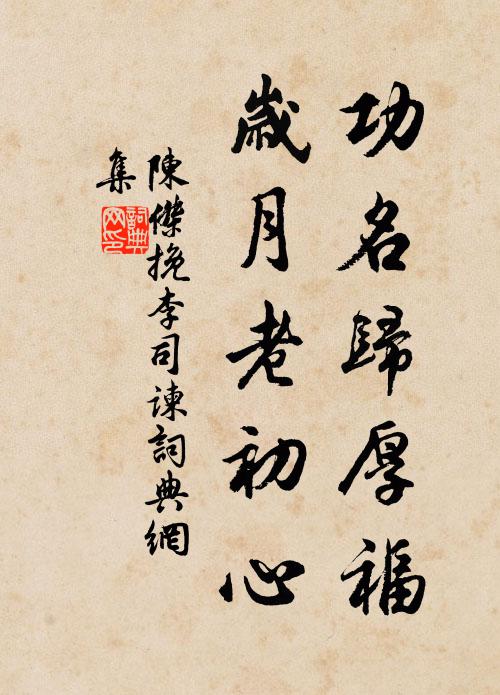 功名歸厚福
歲月老初心
陳傑挽李司諫詞典網
集
詞典
网印